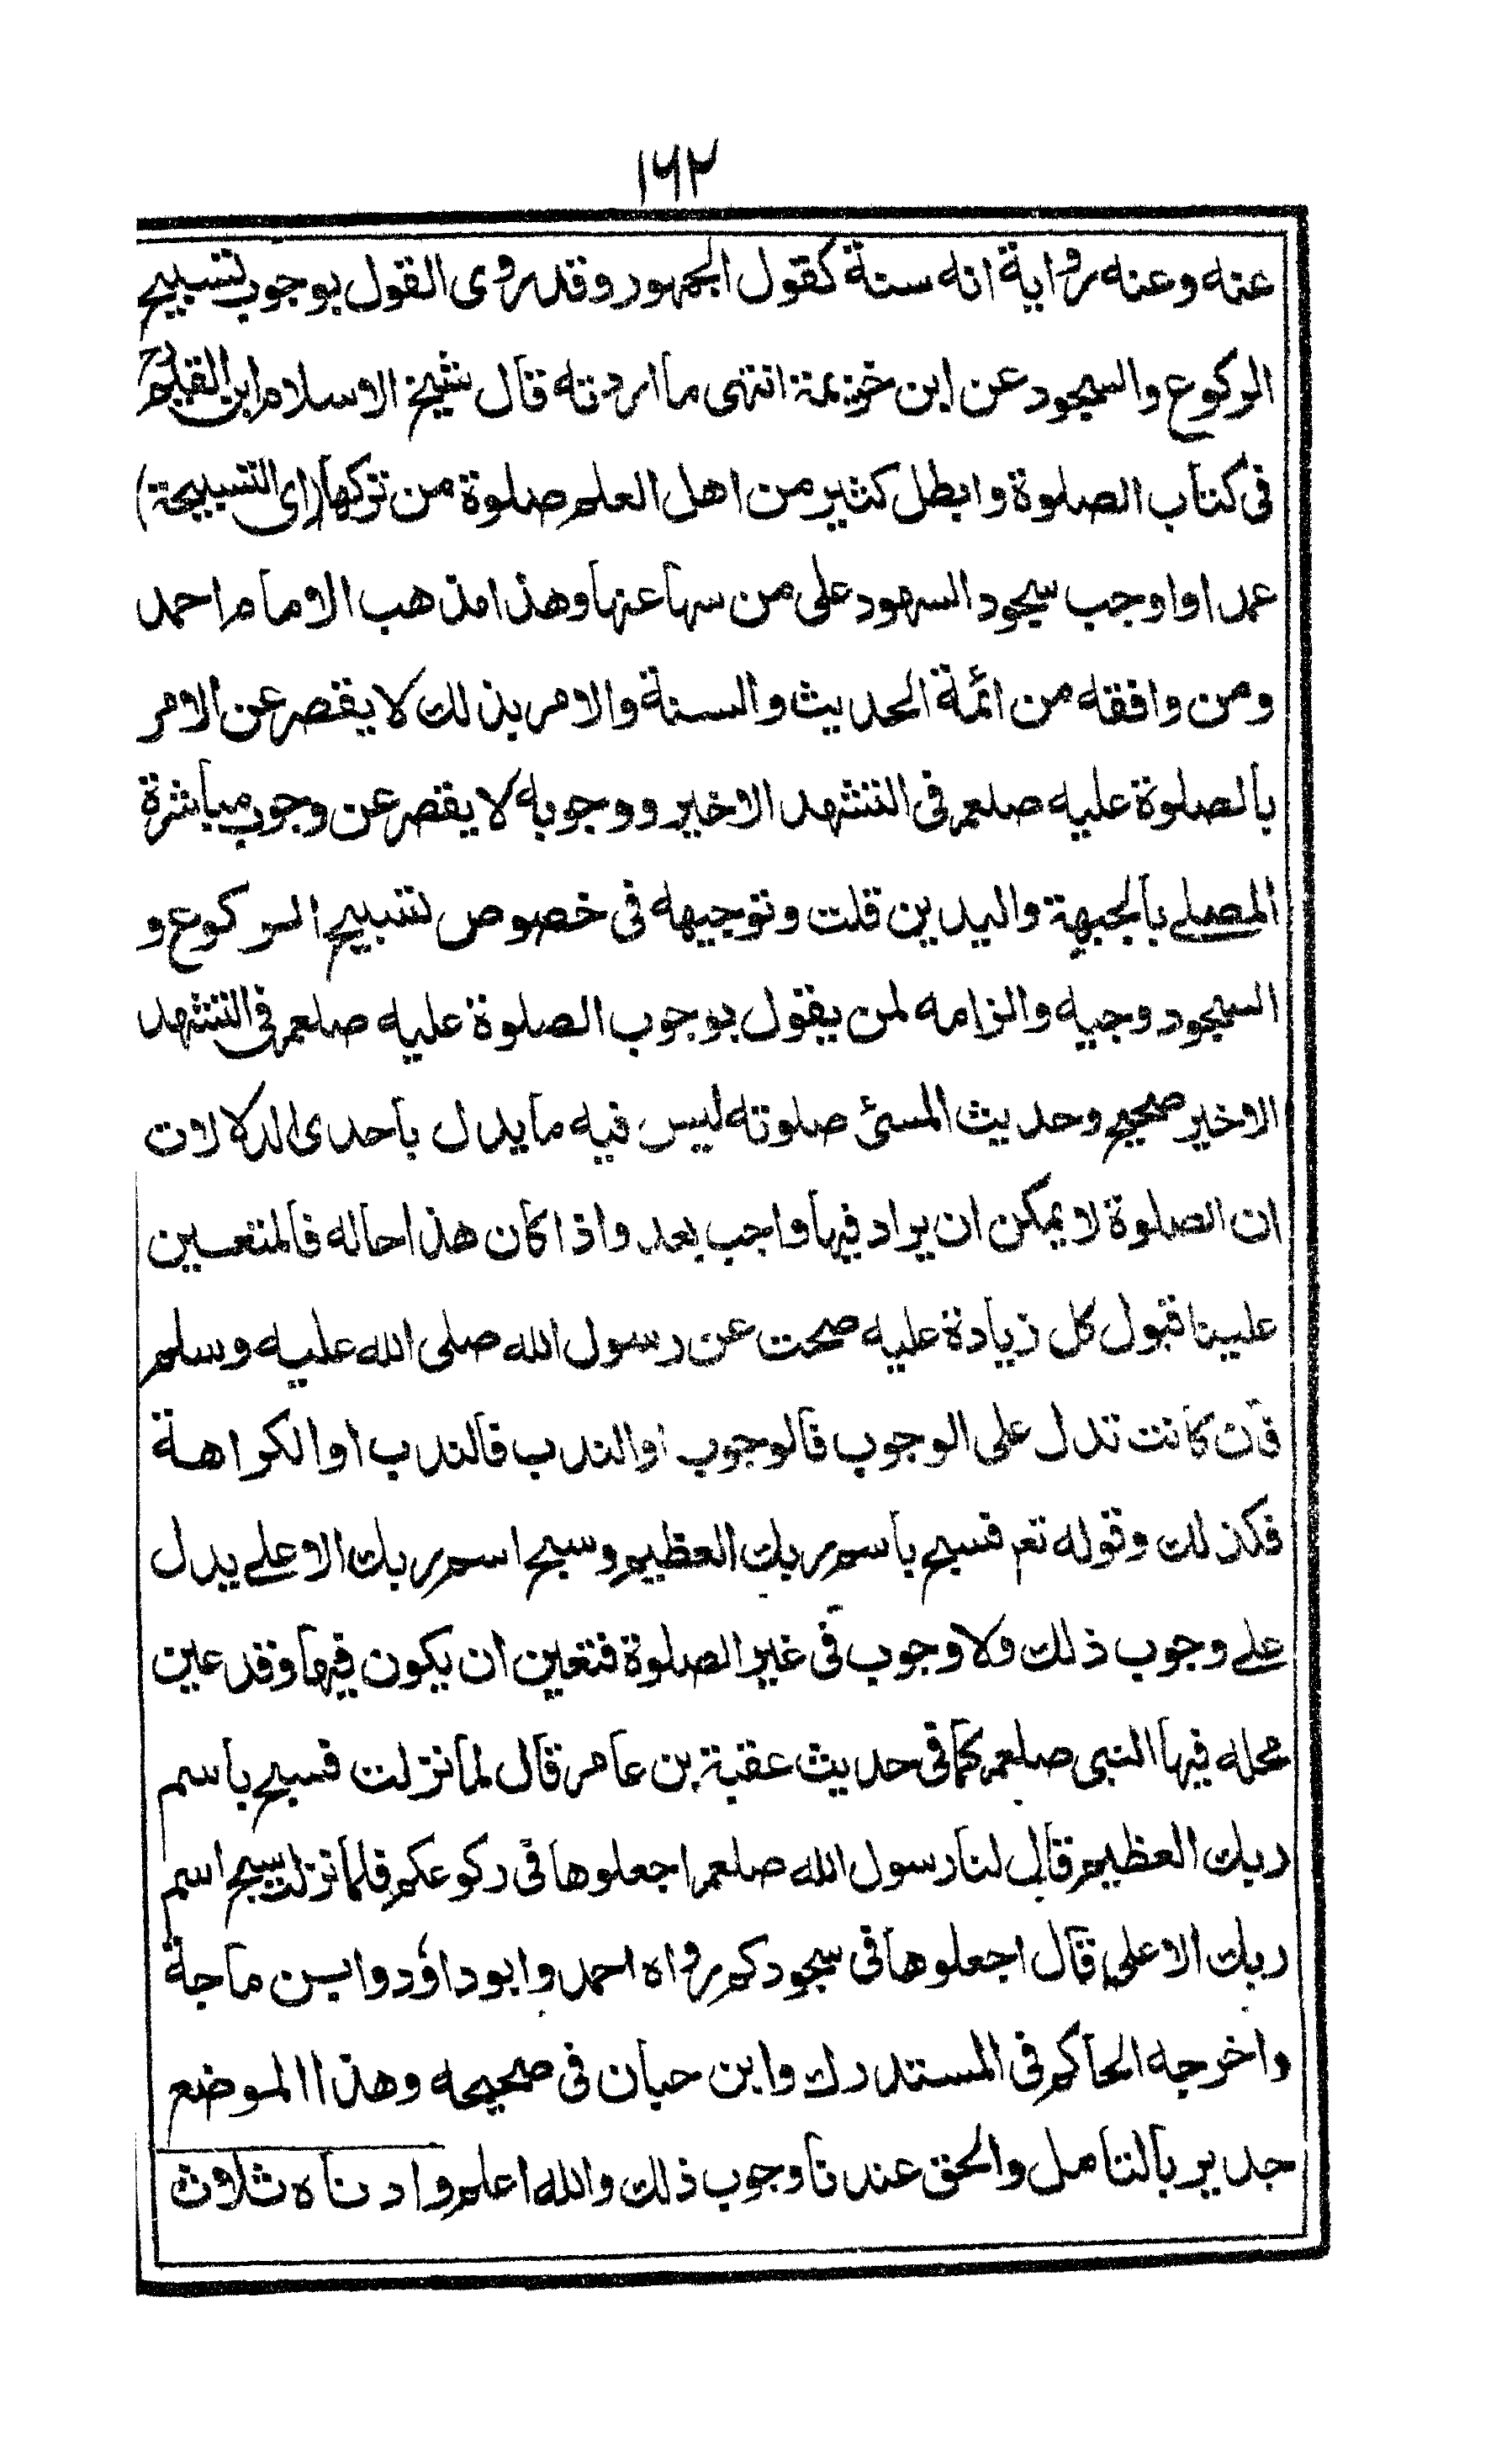 ١٦٢
عنه وعنه رواية انه سنة كقول الجمهور وقد روى القول بوجوب تسبيح
الركوع والسجود عن ابن خزيمة انتهى ما اردته قال شيخ الاسلام ابن القيم رح
فى كتاب الصلوة وابطل كثير من اهل العلم صلوة من تركها (اى التسبيحة)
عمدا واوجب سجود السهود على من سها عنها وهذا مذهب الامام احمد
ومن وافقه من ائمة الحديث والسنة والامر بذلك لا يقصر عن الامر
بالصلوة عليه صلعم فى التشهد الاخير ووجوبه لا يقصر عن وجوب مباشرة
المصلے بالجبهة واليدين قلت وتوجيهه فى خصوص تسبيح الركوع و
السجود وجيه والزامه لمن يقول بوجوب الصلوة عليه صلعم فى التشهد
الاخير صحيح وحديث المسئ صلوته ليس فيه ما يدل باحدى الدلالات
ان الصلوة لا يمكن ان يراد فيها واجب بعد واذا كان هذا حاله فالمتعين
علينا قبول كل زيادة عليه صحت عن رسول الله صلى الله عليه وسلم
فان كانت تدل على الوجوب فالوجوب او الندب فالندب او الكراهة
فكذلك وقوله تع فسبح باسم ربك العظيم وسبح اسم ربك الاعلے يدل
علے وجوب ذلك ولا وجوب فى غير الصلوة فتعين ان يكون فيها وقد عين
محله فيها النبى صلعم كما فى حديث عقبة بن عامر قال لما نزلت فسبح باسم
ربك العظيم قال لنا رسول الله صلعم اجعلوها فى ركوعكم فلما نزلت سبح اسم
ربك الاعلى قال اجعلوها فى سجودكم رواه احمد وابو داؤد وابن ماجة
واخرجه الحاكم فى المستدرك وابن حبان فى صحيحه وهذا الموضع
جدير بالتامل والحق عندنا وجوب ذلك والله اعلم وادناه ثلاث